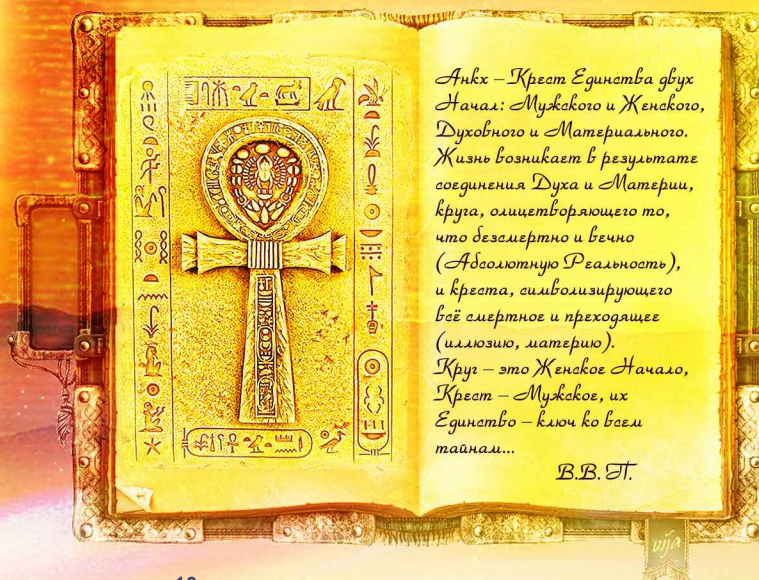 Анкх – Крест Единства двух
Начал: Мужского и Женского,
Духовного и Материального.
Жизнь возникает в результате
соединения Духа и Материи,
круга, олицетворяющего то,
что безсмертно и вечно
(Абсолютную Реальность),
и креста, символизирующего
всё смертное и преходящее
(иллюзию, материю).
Круг – это Женское Начало,
Крест – Мужское, их
Единство – ключ ко всем
тайнам...
В.В. П.
vija